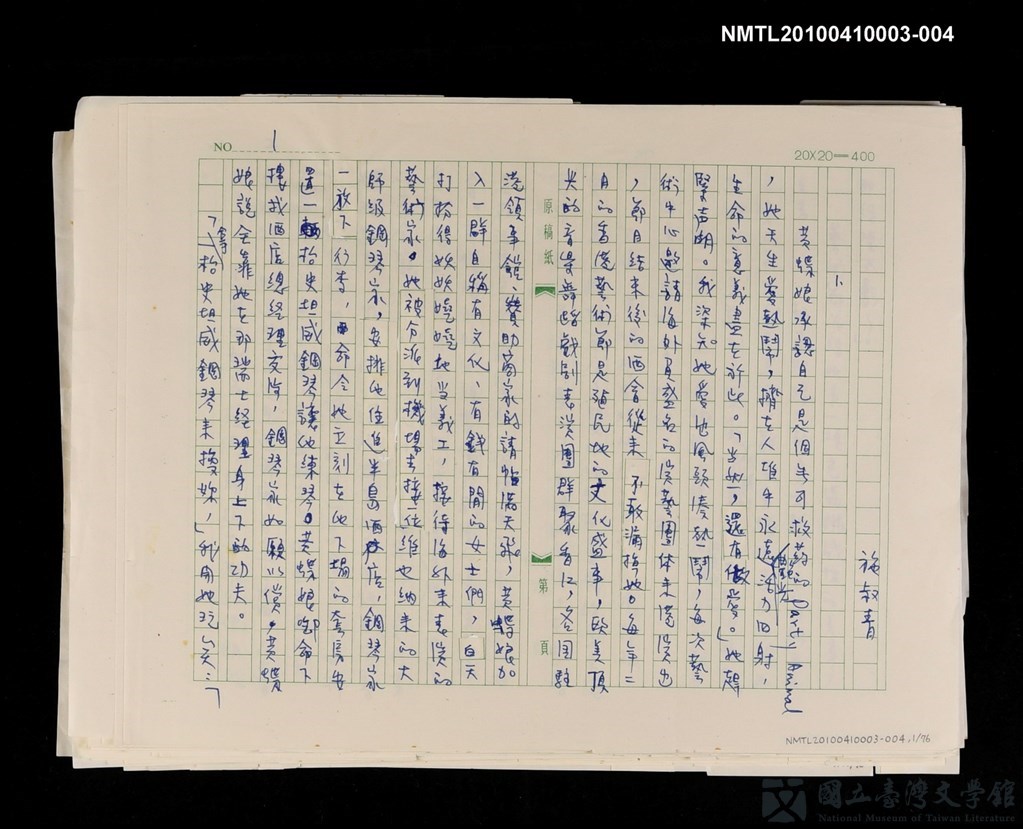 NMTL20100410003-004
NO 1
20X20=400
施叔青
1.
黃蝶娘承認自己是個無可救藥的Party Animal
，她天生愛熱鬧，擠在人堆中永遠活力四射，
生命的意義盡在於此。「當然，還有做愛。」她趕
緊声明。我深知她愛出風頭湊熱鬧，每次藝
術中心邀請海外負盛名的演藝團体來港演出
，節目結束後的酒會從來不敢漏掉她。每年二
月的香港藝術節是殖民地的文化盛事，歐美頂
尖的音樂舞蹈戲劇表演團群聚香江，各国駐
原稿紙
第 頁
港領事館、贊助商家的請帖滿天飛，黃蝶娘加
入一群自稱有文化、有錢有閒的女士們，白天
打扮得妖妖嬈嬈地当義工，接待海外來表演的
藝術家。她被分派到機場去接一位維也納來的大
師級鋼琴家，安排他住進半島酒店，鋼琴家
一放下行李，命令她立刻在他下塌的套房安
置一抬史坦威鋼琴讓他練琴。黃蝶娘啣命下
樓找酒店總經理交涉，鋼琴家如願以償，黃蝶
娘說全靠她在那瑞士經理身上下的功夫。
「拿一抬史坦威鋼琴來換妳，」我用她玩笑：「
NMTL20100410003-004.1/76
國立臺灣文學館
National Museum of Taiwan Literature